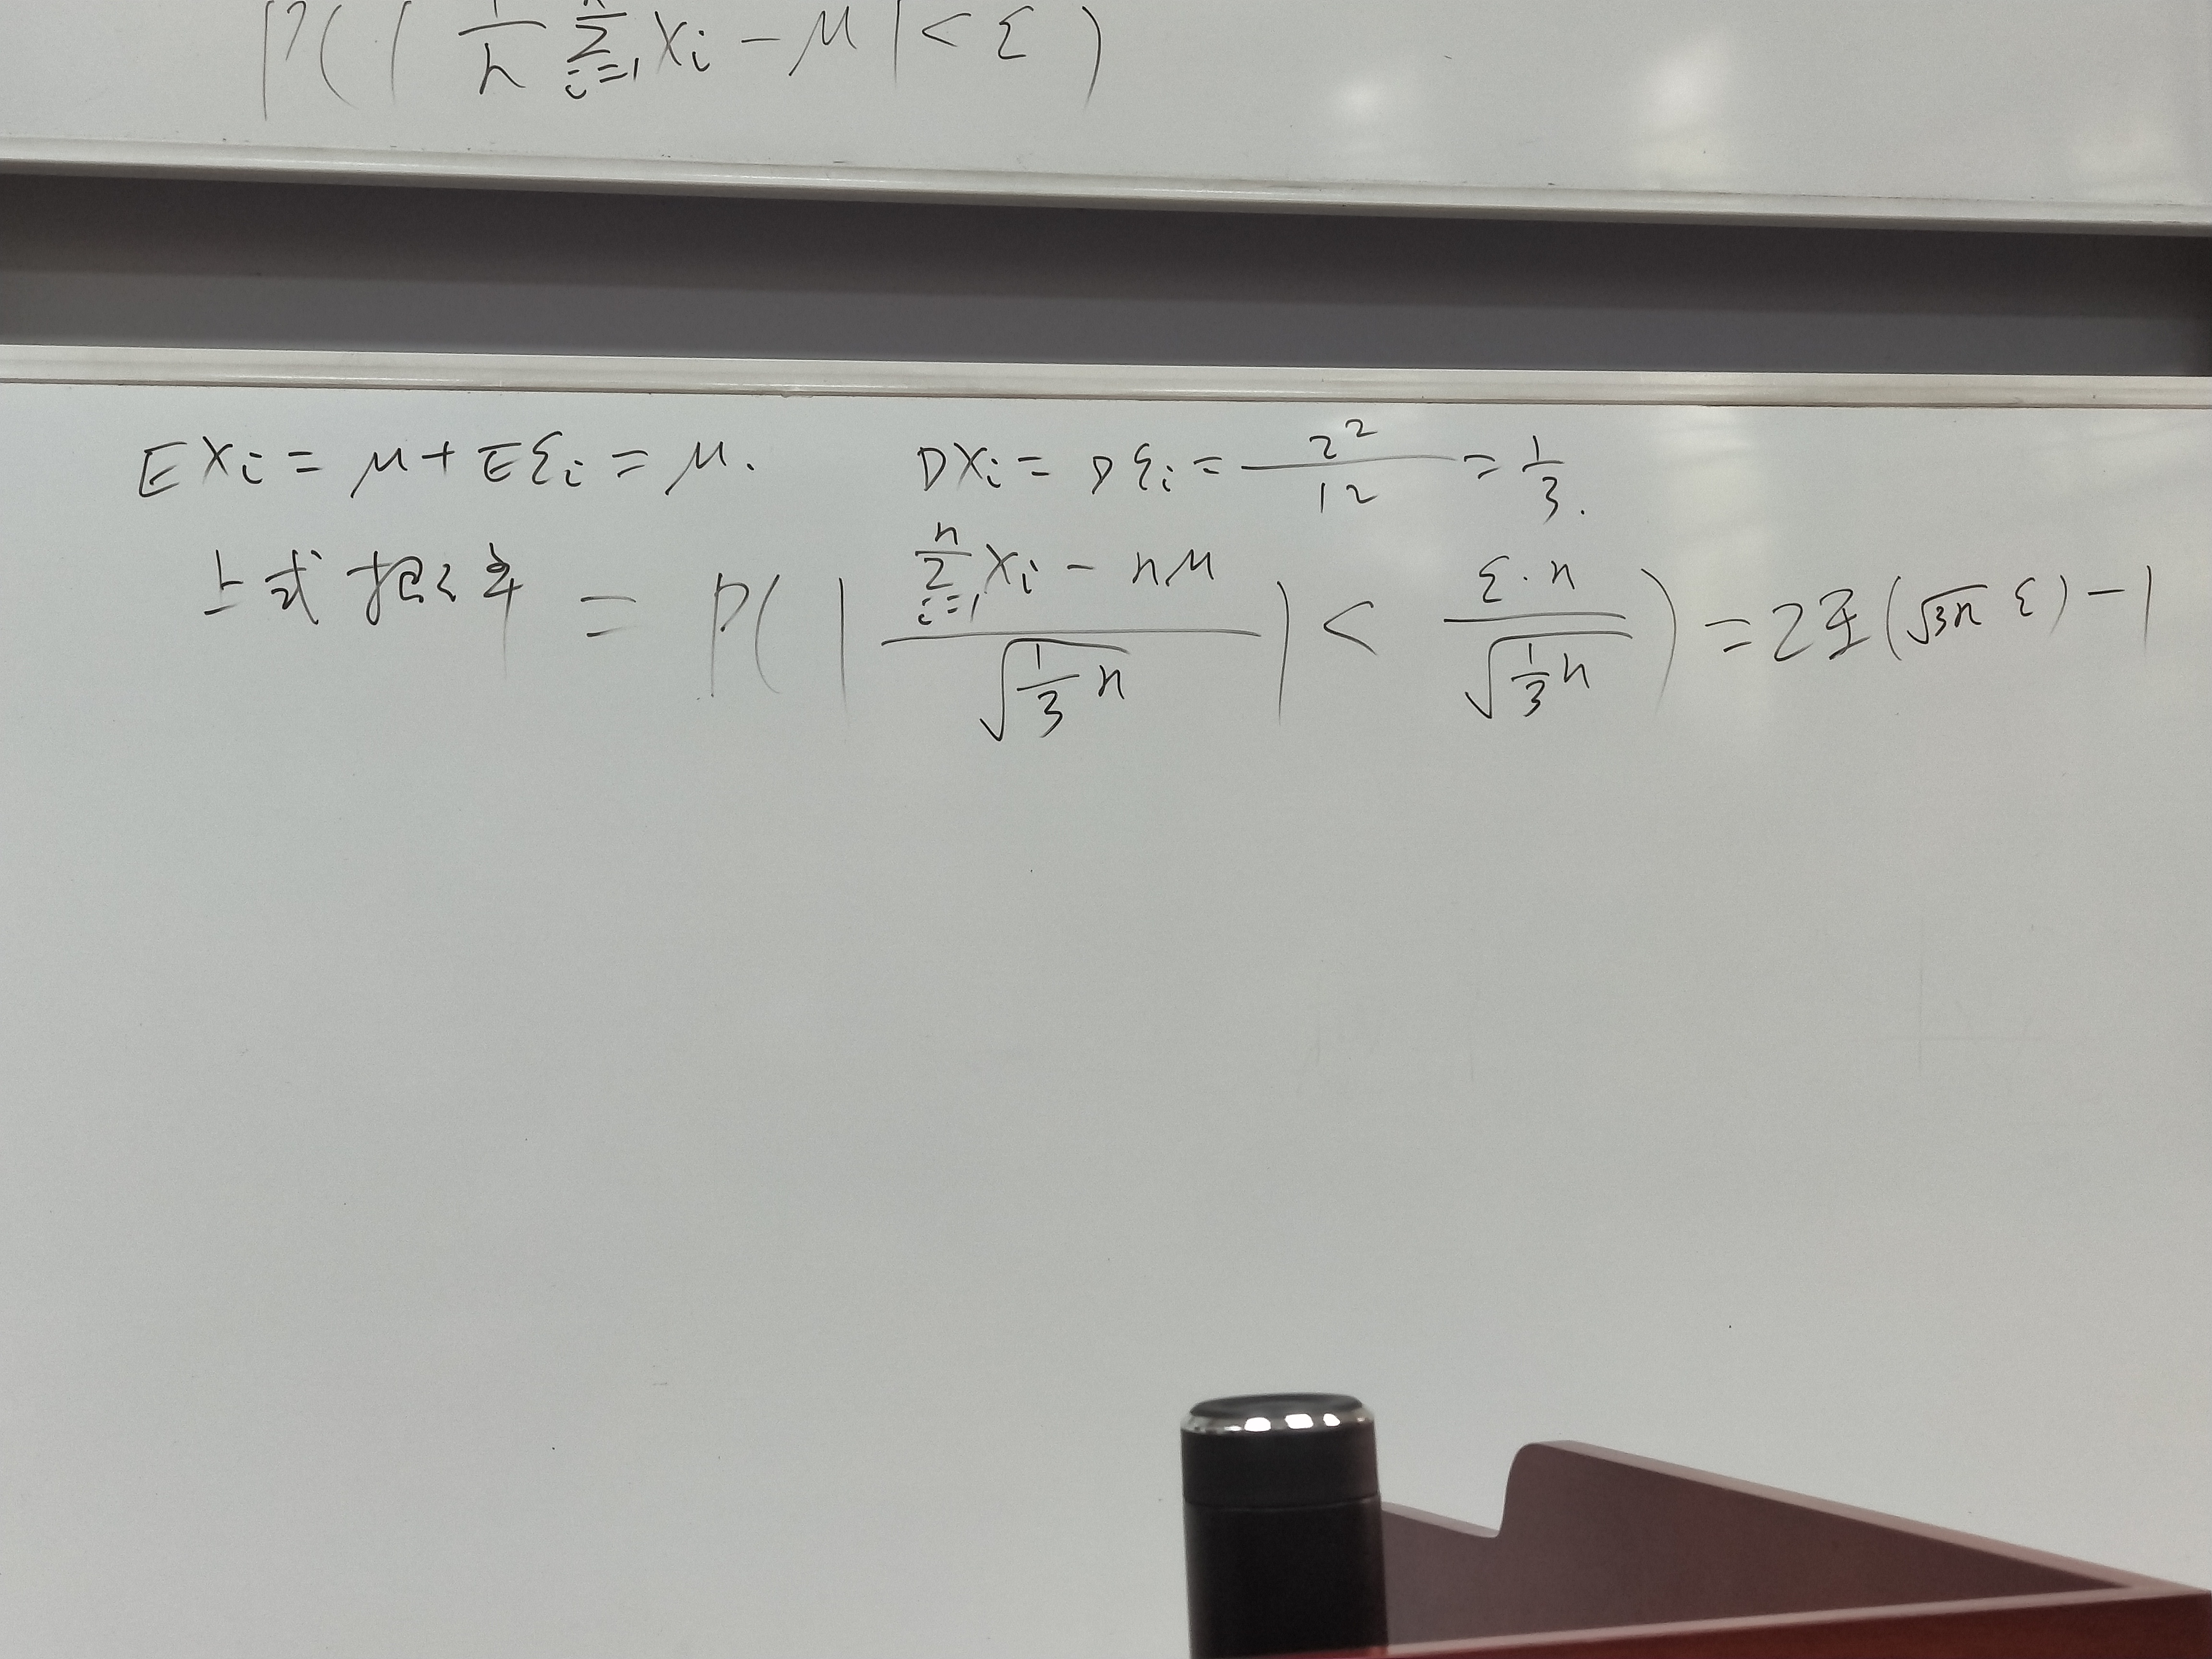 P(|1/n ∑_{i=1}^{n} Xi − μ| < ε)
EXi = μ + Eεi = μ. DXi = Dεi = 2²/12 = 1/3.
上式概率 = P(|(∑_{i=1}^{n} Xi − nμ)/√(1/3 n)| < ε·n/√(1/3 n)) = 2Φ(√3n ε) − 1